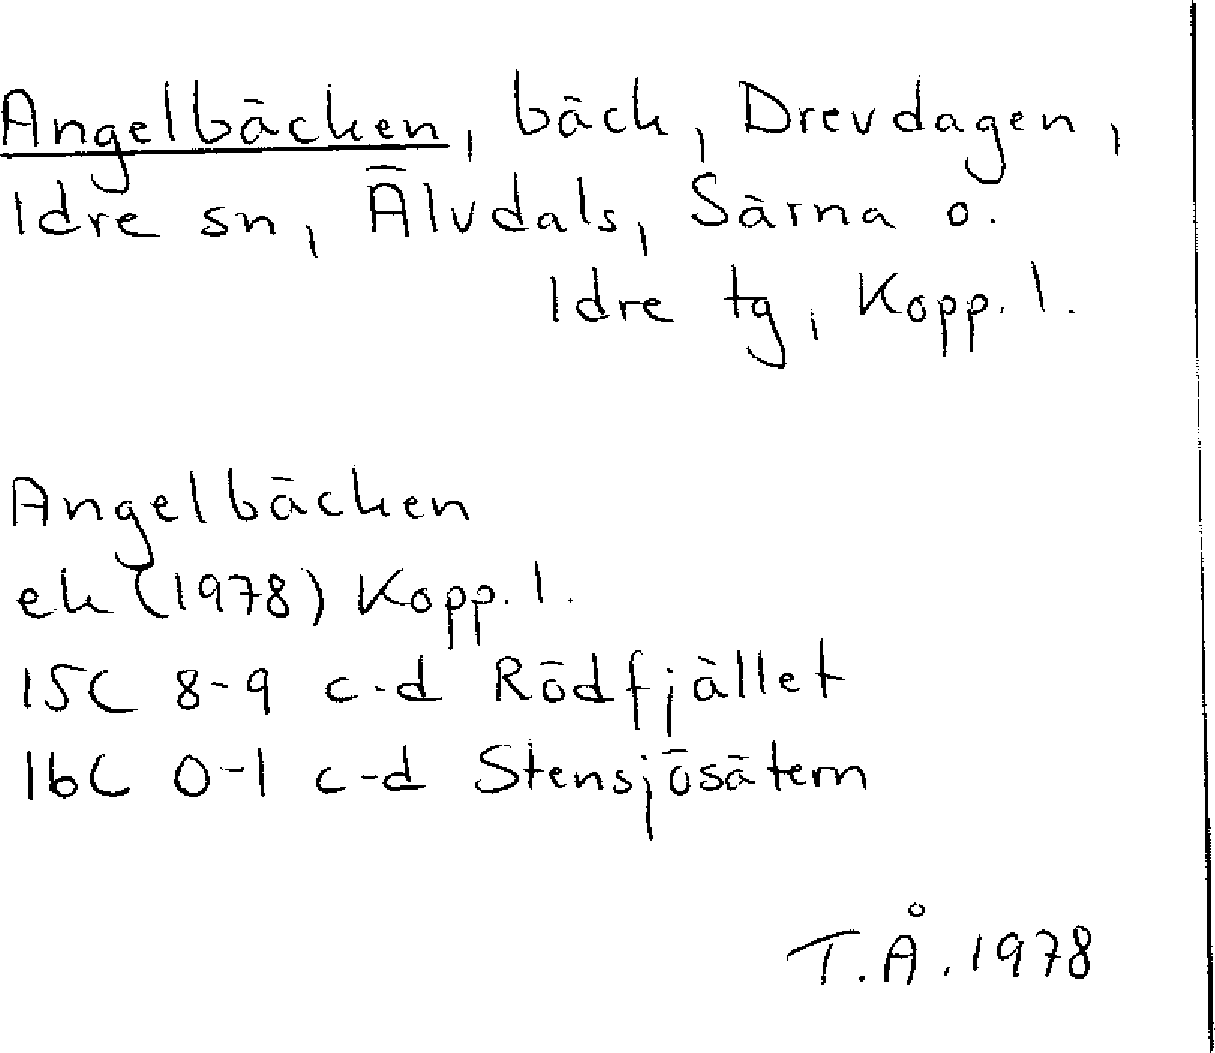 Angelbäcken, bäck, Drevdagen,
Idre sn, Älvdals, Särna o.
Idre tg, Kopp. l.
Angelbäcken
ek (1978) Kopp. l.
15C 8-9 c-d Rödfjället
16C 0-1 c-d Stensjösätern
T.Å. 1978